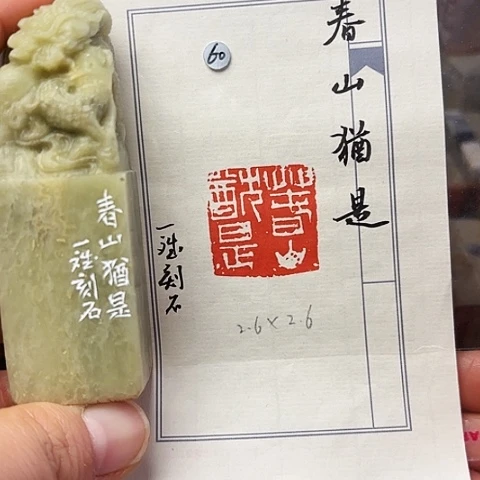 春山猶是
一　刻石
春山猶是
60
春山猶是
一　刻石
2.6×2.6